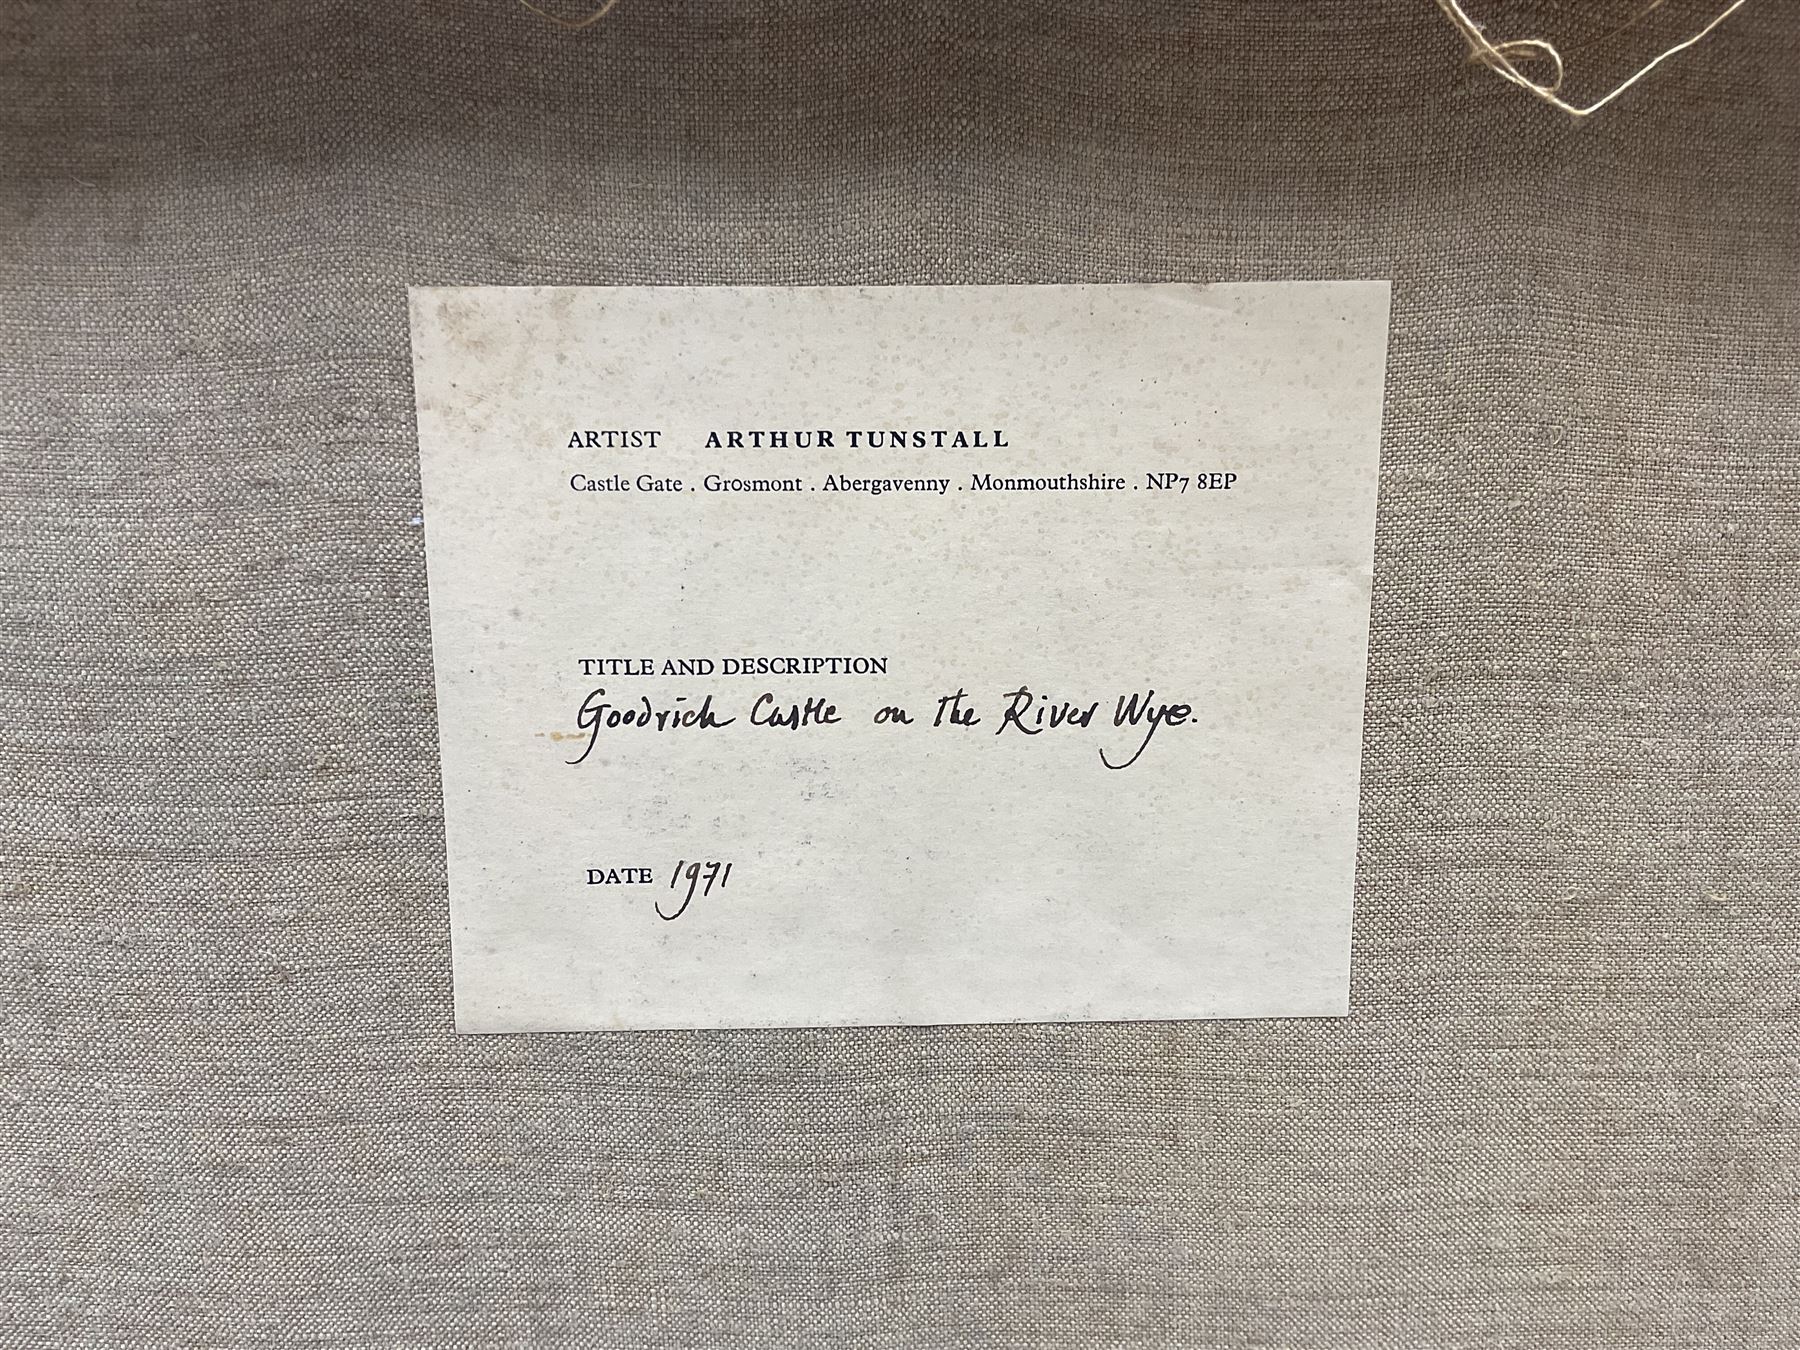 ARTIST ARTHUR TUNSTALL
Castle Gate . Grosmont . Abergavenny . Monmouthshire . NP7 8EP
TITLE AND DESCRIPTION
Goodrich Castle on the River Wye.
DATE 1971